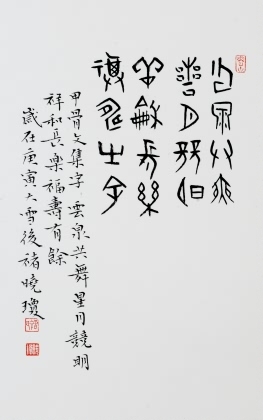 雲泉共舞
星月競明
祥龢長樂
福壽有余
甲骨文集字 雲泉共舞 星月競明
祥和長樂 福壽有餘
歲在庚寅大雪後 褚曉瓊